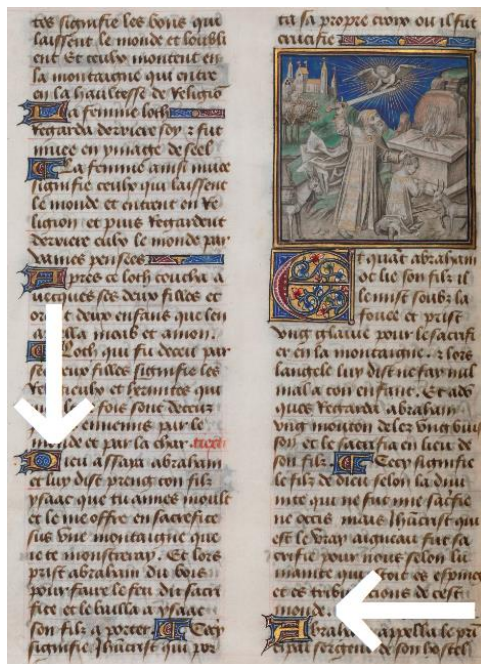 tes signifie les bons qui
laissent le monde et loubli
ent Et ceulx montent en
la montaigne qui entre
en la haultesse de Religio
La femme loth
Regarda derriere soy & fut
muee en ymage de seel
La femme ainsi muee
signifie ceulx qui laissent
le monde et entrent en Re
ligion et puis Regardent
derriere eulx le monde par
vaines pensees
Apres ce loth coucha a
vecques ses deux filles et
deux enfans que len
moab et amon.
Loth qui fu deceu par
deux filles signifie les
et hermites qui
fois sont deceuz
ennemis par le
monde et par la char.
Dieu assaya abraham
et luy dist preng ton filz
ysaac que tu aimes moult
et le me offre en sacrefice
sus une montaigne que
ie te monstreray. Et lors
prist abraham du bois
pour faire le feu du sacri
fice et le bailla a ysaac
son filz a porter Cecy
signifie Jhucrist qui por
ta sa propre croix ou il fut
crucifie
Et quat abraham
ot lie son filz il
le mist soubz la
et prist
ung glaive pour le sacrifi
er en la montaigne. & lors
langele luy dist ne fay nul
mal a ton enfant. Et ado
ques Regarda abraham
ung mouton delez ung buis
son et le sacrifia en lieu de
son filz Cecy signifie
le filz de dieu selon la divi
nite qui ne fut mie sacrifie
ne occis mais Jhucrist qui
est le vray aigneau fut sa
crifie pour nous selon lu
manite qui es espines
et es tribulacions de cest
monde.
Abraham appella le pri
sergent de son hostel